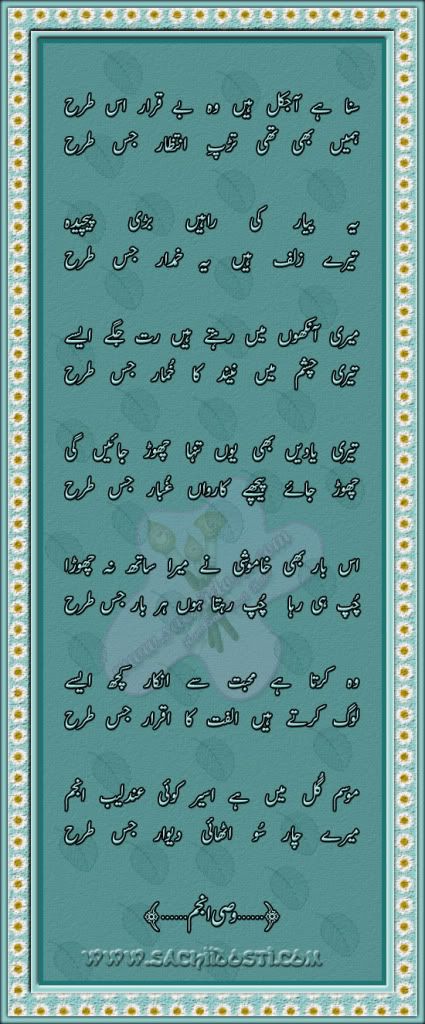 سنا ہے آجکل ہیں وہ بے قرار اس طرح
ہمیں بھی تھی تڑپِ انتظار جس طرح
یہ پیار کی راہیں بڑی پیچیدہ
تیرے زلف ہیں یہ خمدار جس طرح
میری آنکھوں میں رہتے ہیں رت جگے ایسے
تیری چشم میں نیند کا خُمار جس طرح
تیری یادیں بھی یوں تنہا چھوڑ جائیں گی
چھوڑ جائے پیچھے کارواں غُبار جس طرح
اس بار بھی خاموشی نے میرا ساتھ نہ چھوڑا
چُپ ہی رہا چُپ رہتا ہوں ہر بار جس طرح
وہ کرتا ہے محبت سے انکار کچھ ایسے
لوگ کرتے ہیں الفت کا اقرار جس طرح
موسمِ گُل میں ہے اسیر کوئی عندلیب انجم
میرے چار سُو اٹھائی دیوار جس طرح
﴿......وصی انجم......﴾
WWW.SACHIDOSTI.COM